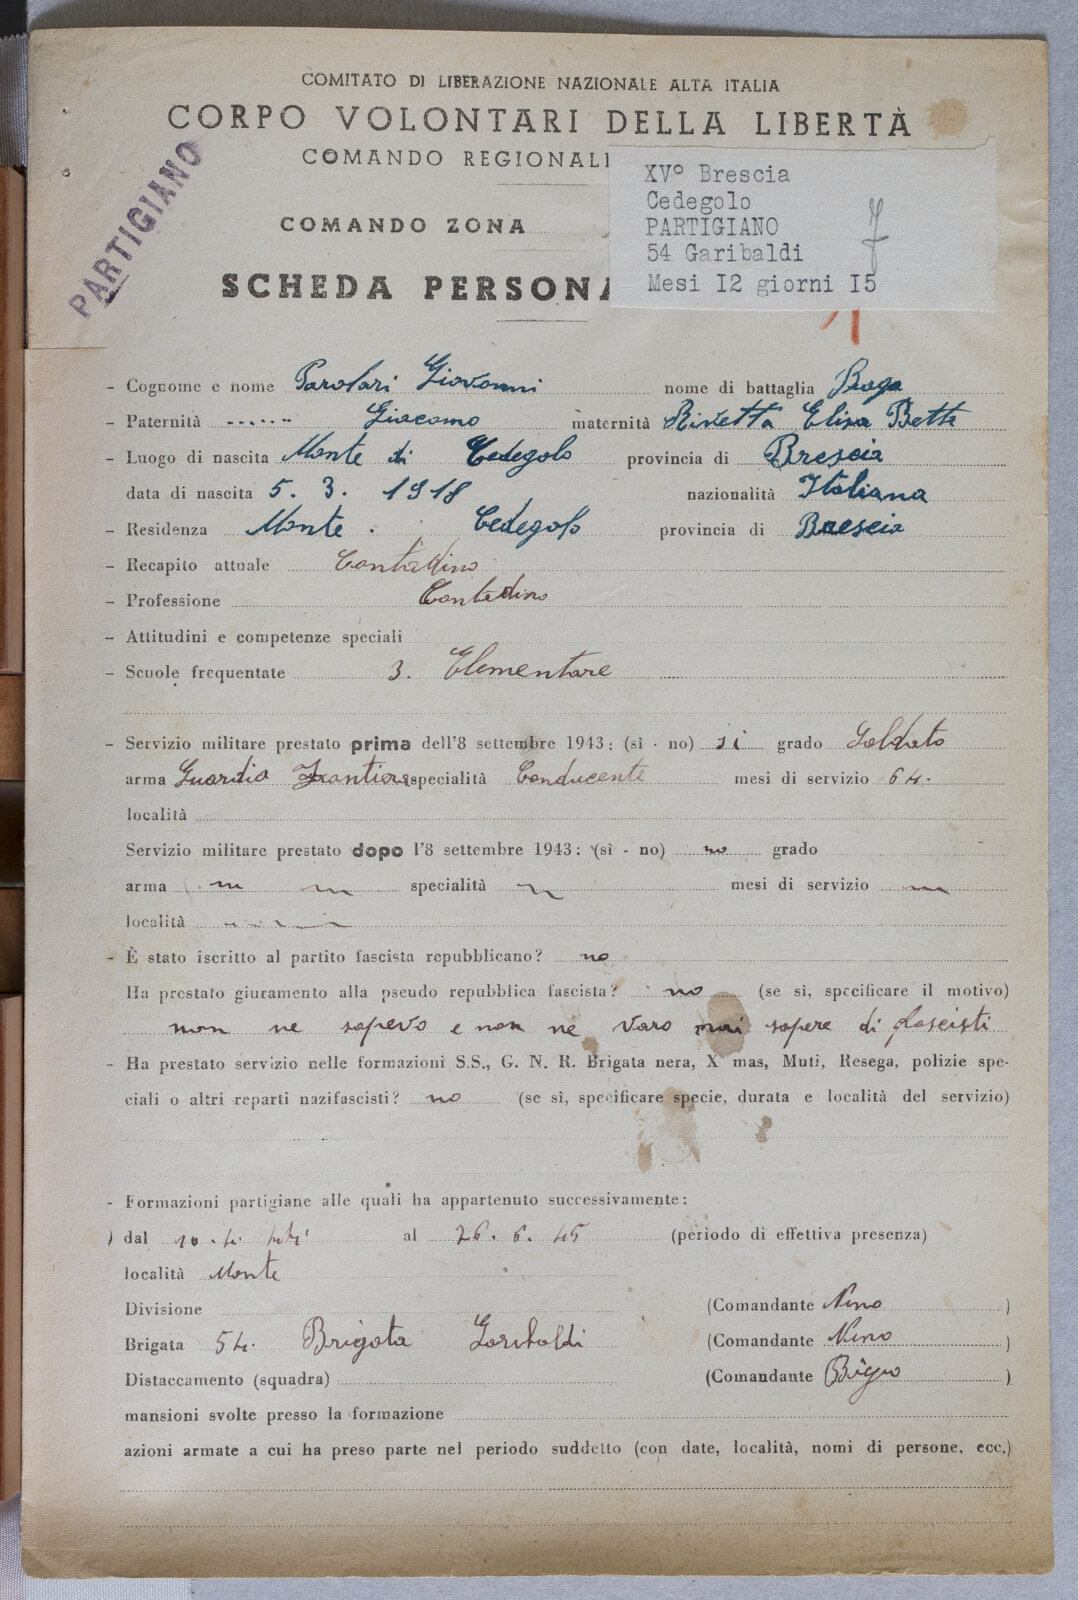 COMITATO DI LIBERAZIONE NAZIONALE ALTA ITALIA
CORPO VOLONTARI DELLA LIBERTÀ
COMANDO REGIONAL
PARTIGIANO
XV° Brescia
Cedegolo
PARTIGIANO
54 Garibaldi
Mesi I2 giorni I5
COMANDO ZONA
SCHEDA PERSONA
- Cognome e nome Parolari Giovanni nome di battaglia Braga
- Paternità ...... Giacomo maternità Elisa Betta
- Luogo di nascita Monte di Cedegolo provincia di Brescia
data di nascita 5. 3. 1918 nazionalità Italiana
- Residenza Monte . Cedegolo provincia di Brescia
- Recapito attuale Contadino
- Professione Contadino
- Attitudini e competenze speciali
- Scuole frequentate 3. Elementare
- Servizio militare prestato prima dell'8 settembre 1943: (sì - no) si grado Soldato
arma Guardia Frontiera specialità Conducente mesi di servizio 64.
località
Servizio militare prestato dopo l'8 settembre 1943: (sì - no) no grado
arma specialità mesi di servizio
località
- È stato iscritto al partito fascista repubblicano? no
Ha prestato giuramento alla pseudo repubblica fascista? no (se sì, specificare il motivo)
non ne sapevo e non ne varo mai sapere di fascisti
- Ha prestato servizio nelle formazioni S.S., G. N. R. Brigata nera, X mas, Muti, Resega, polizie spe-
ciali o altri reparti nazifascisti? no (se sì, specificare specie, durata e località del servizio)
- Formazioni partigiane alle quali ha appartenuto successivamente:
) dal 10. 4. 44 al 26. 6. 45 (periodo di effettiva presenza)
località Monte
Divisione (Comandante Nino )
Brigata 54. Brigata Garibaldi (Comandante Nino )
Distaccamento (squadra) (Comandante Bigio )
mansioni svolte presso la formazione
azioni armate a cui ha preso parte nel periodo suddetto (con date, località, nomi di persone, ecc.)